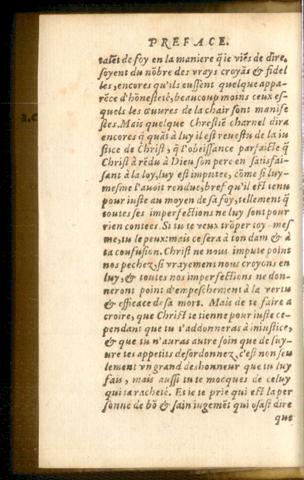 PREFACE.
tales de foy en la maniere q̃ ie viẽs de dire,
soyent du nõbre des vrays croyãs & fidel
les, encores qu'ils eussent quelque appa-
rẽce d'hõnesteté, beaucoup moins ceux es-
quels les œuures de la chair sont manife
stees. Mais quelque Chrestiẽ charnel dira
encores q̃ quãt à luy il est reuestu de la iu
stice de Christ, q̃ l'obeissance parfaicte q̃
Christ à rẽdu à Dieu son pere en satisfai-
sant à la loy, luy est imputee, cõme si luy-
mesme l'auoit rendue, bref qu'il est tenu
pour iuste au moyen de sa foy, tellement q̃
toutes ses imperfections ne luy sont pour
rien contees. Si tu te veux trõper toy-mes
me, tu le peux: mais ce sera à ton dam & à
ta confusion. Christ ne nous impute point
nos pechez, si vrayement nous croyons en
luy, & toutes nos imperfections ne don-
neront point d'empeschement à la vertu
& efficace de sa mort. Mais de te faire a
croire, que Christ te tienne pour iuste ce-
pendant que tu t'addonneras à iniustice,
& que tu n'auras autre soin que de suy-
ure tes appetits desordonnez, c'est non seu
lement vn grand deshonneur que tu luy
fais, mais aussi tu te mocques de celuy
qui t'a racheté. Et ie te prie qui est la per
sonne de bõ & sain iugemẽt qui osast dire
que